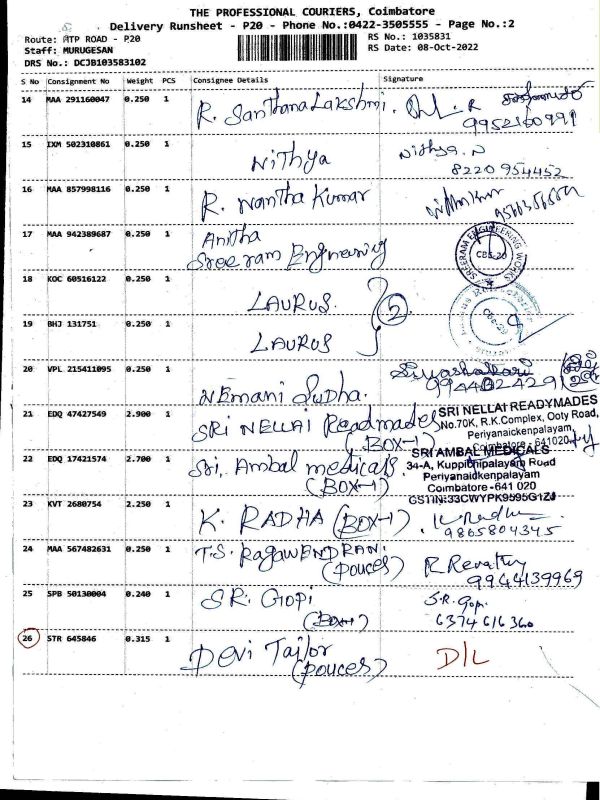 THE PROFESSIONAL COURIERS, Coimbatore
Delivery Runsheet - P20 - Phone No.:0422-3505555 - Page No.:2
Route: MTP ROAD - P20
RS No.: 1035831
Staff: MURUGESAN
RS Date: 08-Oct-2022
DRS No.: DCJB103583102
S No Consignment No Weight PCS Consignee Details Signature
14 MAA 291160047 0.250 1 R. Santhana Lakshmi. R
9952160991
15 IXM 502310861 0.250 1 Nithya Nithya.N
8220954452
16 MAA 857998116 0.250 1 R. Nantha Kumar
17 MAA 942389687 0.250 1 Anitha
Sreeram Engineering
SREERAM ENGINEERING WORKS
CBE-29
18 KOC 60516122 0.250 1 LAURUS. 2
19 BHJ 131751 0.250 1 LAURUS
CBE-29
20 VPL 215411095 0.250 1 NEmani Sudha.
21 EDQ 47427549 2.900 1 SRI NELLAI Readmades
(BOX-1)
SRI NELLAI READYMADES
No.70K, R.K.Complex, Ooty Road,
Periyanaickenpalayam,
Coimbatore - 641020
22 EDQ 17421574 2.700 1 Sri. Ambal medicals.
(BOX-1)
SRI AMBAL MEDICALS
34-A, Kuppichipalayam Road
Periyanaidkenpalayam
Coimbatore-641 020
GSTIN:33CWYPK9595G1ZJ
23 KVT 2680754 2.250 1 K. RADHA (BOX-1) K Radha
9865804345
24 MAA 567482631 0.250 1 T.S. RagawENDRAN.
(Pouces)
R Revathy
9944139969
25 SPB 50130004 0.240 1 SR. GOPI
(Box-1)
S.R. Gopi
6374616360
26 STR 645846 0.315 1 DEVI Tailor
(pouces)
D/L